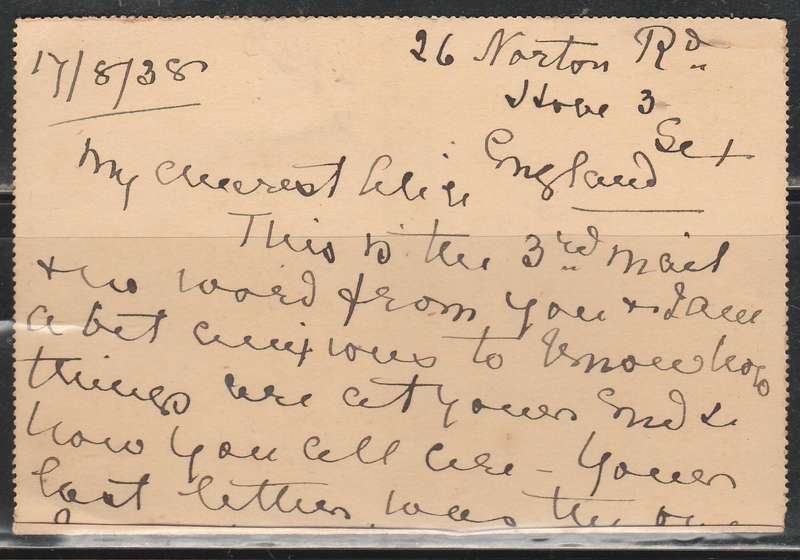 17/8/38
26 Norton Rd
Hove 3
Sx
England
My dearest
This is the 3rd mail
& no word from you & I am
a bit anxious to know how
things are at your end &
how you all are - Your
last letter was the one